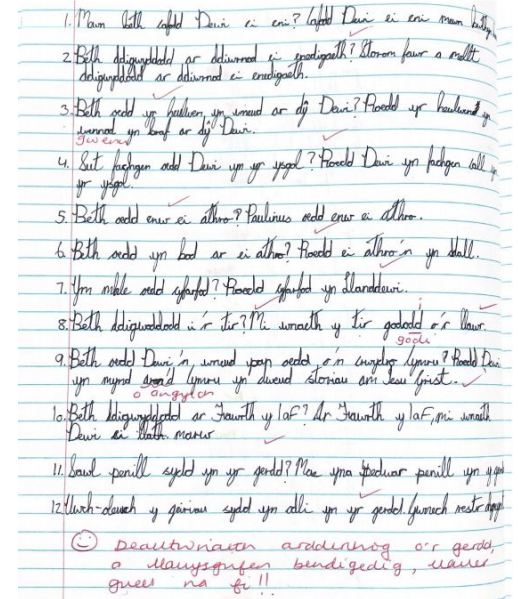 1. Mewn beth cafodd Dewi ei eni? Cafodd Dewi ei eni mewn
2. Beth ddigwyddodd ar ddiwrnod ei enedigaeth? Storom fawr a mellt
ddigwyddodd ar ddiwrnod ei enedigaeth.
3. Beth oedd yr heulwen yn wneud ar dŷ Dewi? Roedd yr heulwen yn
wenud yn braf ar dŷ Dewi.
gwenu
4. Sut fachgen oedd Dewi yn yr ysgol? Roedd Dewi yn fachgen call yn
yr ysgol.
5. Beth oedd enw ei athro? Paulinus oedd enw ei athro.
6. Beth oedd yn bod ar ei athro? Roedd ei athro'n yn ddall.
7. Ym mhle oedd cyfarfod? Roedd cyfarfod yn Llanddewi.
8. Beth ddigwyddodd i'r tir? Mi wnaeth y tir godi o'r llawr.
godi
9. Beth oedd Dewi'n wneud pan oedd o'n crwydro Cymru? Roedd Dewi
yn mynd Cymru yn dweud storiau am Iesu Grist.
o amgylch
10. Beth ddigwyddodd ar Fawrth y 1af? Ar Fawrth y 1af, mi wnaeth
Dewi Sant marw
11. Sawl penill sydd yn yr gerdd? Mae yna pedwar penill yn y gerdd
12. Uwch-oleuch y geiriau sydd yn odli yn yr gerdd. Gwnech restr
Dealltwriaeth ardderchog o'r gerdd,
a llawysgrifen bendigedig, llawer
gwell na fi!!